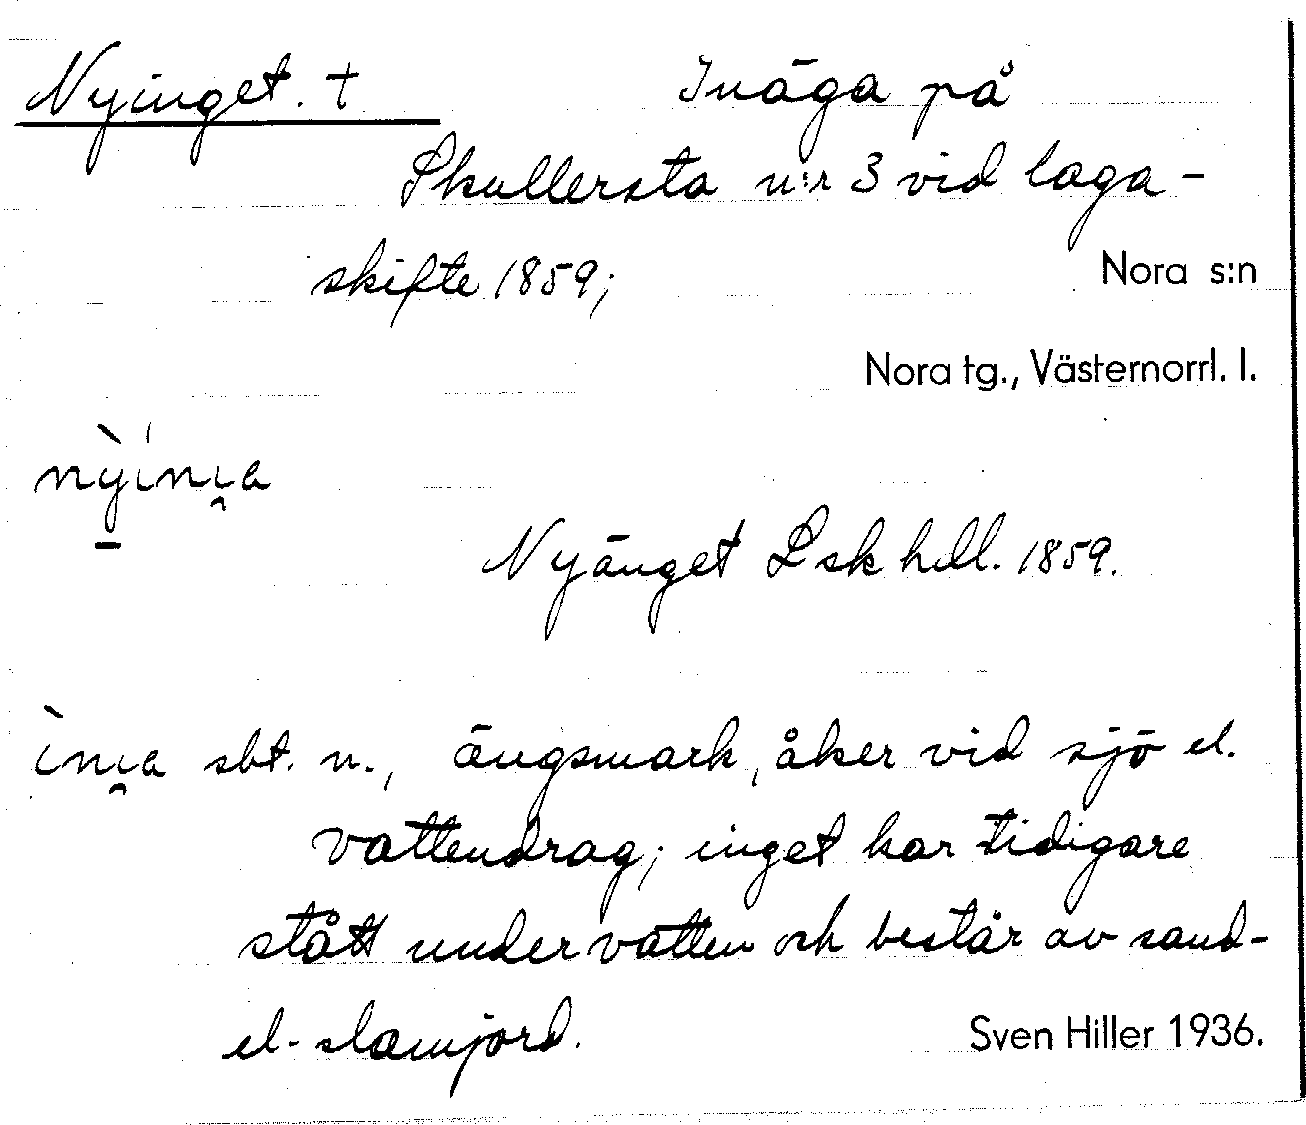 Nyinget. † Inäga på
Skullersta n:r 3 vid laga-
skifte 1859;
Nora s:n
Nora tg., Västernorrl. l.
Nyänget Lsk hdl. 1859.
sbt. n., ängsmark, åker vid sjö el.
vattendrag; inget har tidigare
stått under vatten och består av sand-
el. slamjord.
Sven Hiller 1936.